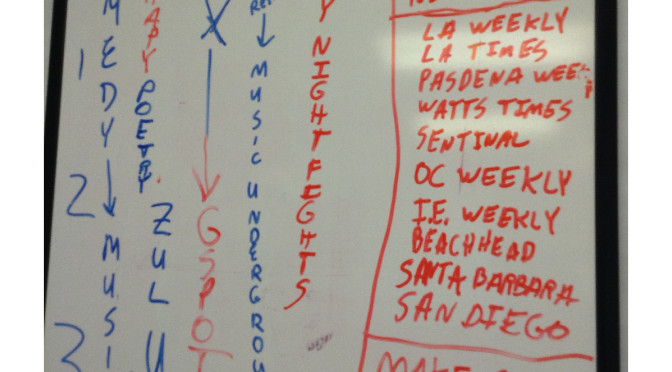 1
2
3
MEDY
MUSI
POETRY
ZULU
X
GSPOT
MUSIC UNDERGROU
Y NIGHT FIGHTS
LA WEEKLY
LA TIMES
PASDENA WEE
WATTS TIMES
SENTINAL
OC WEEKLY
I.E. WEEKLY
BEACHHEAD
SANTA BARBARA
SAN DIEGO